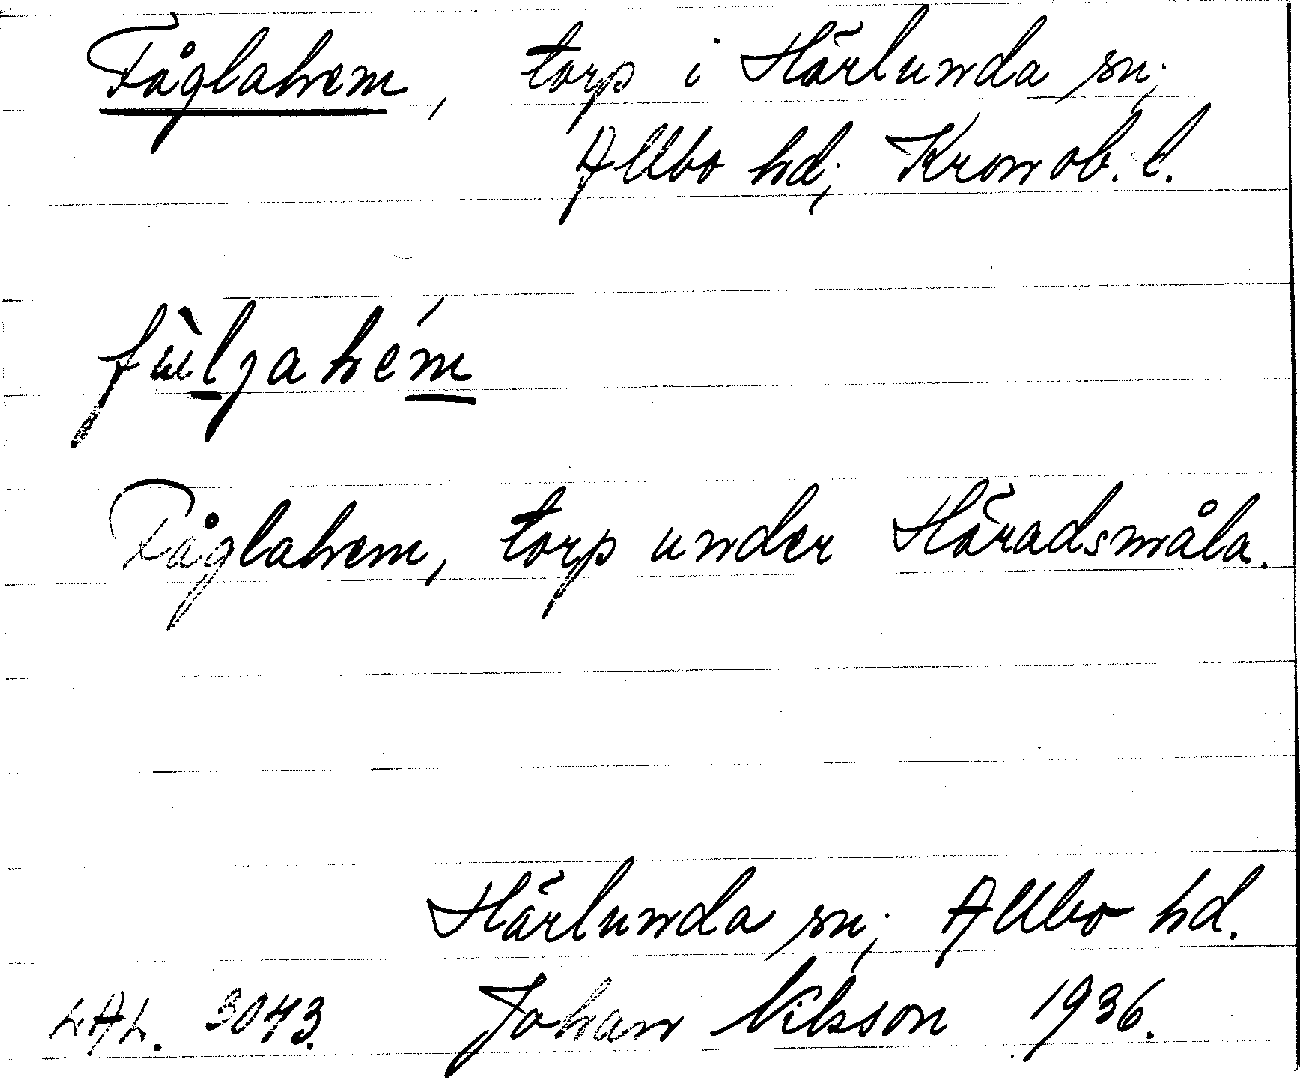 Fåglahem, torp i Härlunda sn;
Allbo hd; Kronob. l.
Fåglahem, torp under Häradsmåla.
Härlunda sn; Allbo hd.
LAL. 3043. Johan Nilsson 1936.